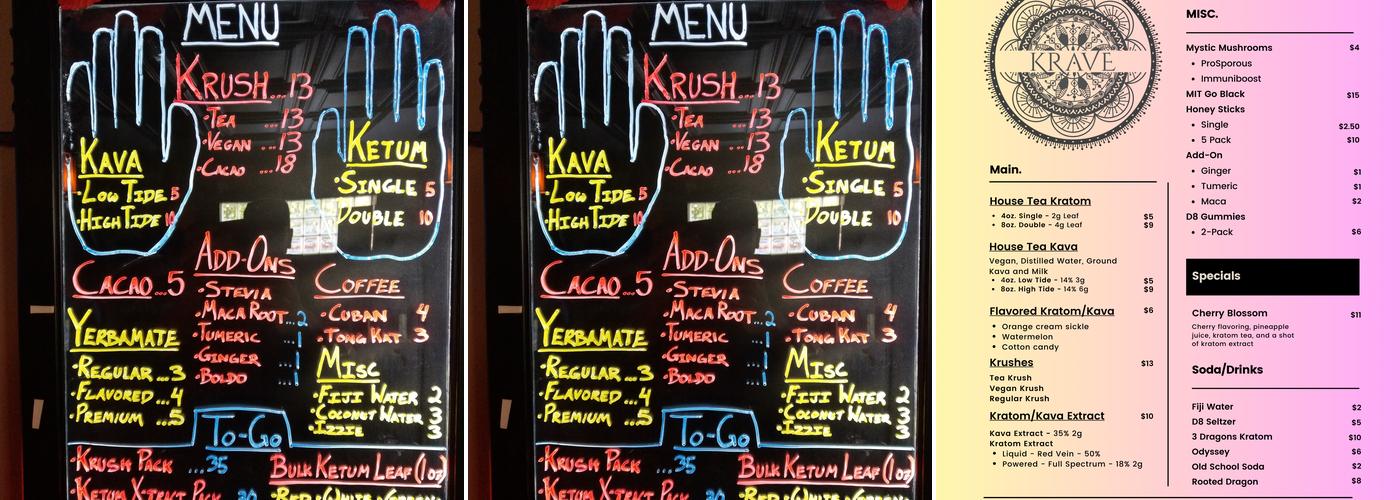 MENU
KRUSH...13
·TEA ...13
·VEGAN ...13
·CACAO ...18
KAVA
·LOW TIDE 5
·HIGH TIDE 10
KETUM
·SINGLE 5
DOUBLE 10
ADD-ONS
·STEVIA
·MACA ROOT...2
·TUMERIC ...1
·GINGER ...1
·BOLDO ...1
CACAO...5
COFFEE
·CUBAN 4
·TONG KAT 3
YERBAMATE
·REGULAR...3
·FLAVORED...4
·PREMIUM...5
MISC
·FIJI WATER 2
·COCONUT WATER 3
·IZZIE 3
TO-GO
·KRUSH PACK ...35
BULK KETUM LEAF (1oz)
MENU
KRUSH...13
·TEA ...13
·VEGAN ...13
·CACAO ...18
KAVA
·LOW TIDE 5
·HIGH TIDE 10
KETUM
·SINGLE 5
DOUBLE 10
ADD-ONS
·STEVIA
·MACA ROOT...2
·TUMERIC ...1
·GINGER ...1
·BOLDO ...1
CACAO...5
COFFEE
·CUBAN 4
·TONG KAT 3
YERBAMATE
·REGULAR...3
·FLAVORED...4
·PREMIUM...5
MISC
·FIJI WATER 2
·COCONUT WATER 3
·IZZIE 3
TO-GO
·KRUSH PACK ...35
BULK KETUM LEAF (1oz)
KRAVE
Main.
House Tea Kratom
• 4oz. Single - 2g Leaf $5
• 8oz. Double - 4g Leaf $9
House Tea Kava
Vegan, Distilled Water, Ground
Kava and Milk
• 4oz. Low Tide - 14% 3g $5
• 8oz. High Tide - 14% 6g $9
Flavored Kratom/Kava $6
• Orange cream sickle
• Watermelon
• Cotton candy
Krushes $13
Tea Krush
Vegan Krush
Regular Krush
Kratom/Kava Extract $10
Kava Extract - 35% 2g
Kratom Extract
• Liquid - Red Vein - 50%
• Powered - Full Spectrum - 18% 2g
MISC.
Mystic Mushrooms $4
• ProSporous
• Immuniboost
MIT Go Black $15
Honey Sticks
• Single $2.50
• 5 Pack $10
Add-On
• Ginger $1
• Tumeric $1
• Maca $2
D8 Gummies
• 2-Pack $6
Specials
Cherry Blossom $11
Cherry flavoring, pineapple
juice, kratom tea, and a shot
of kratom extract
Soda/Drinks
Fiji Water $2
D8 Seltzer $5
3 Dragons Kratom $10
Odyssey $6
Old School Soda $2
Rooted Dragon $8